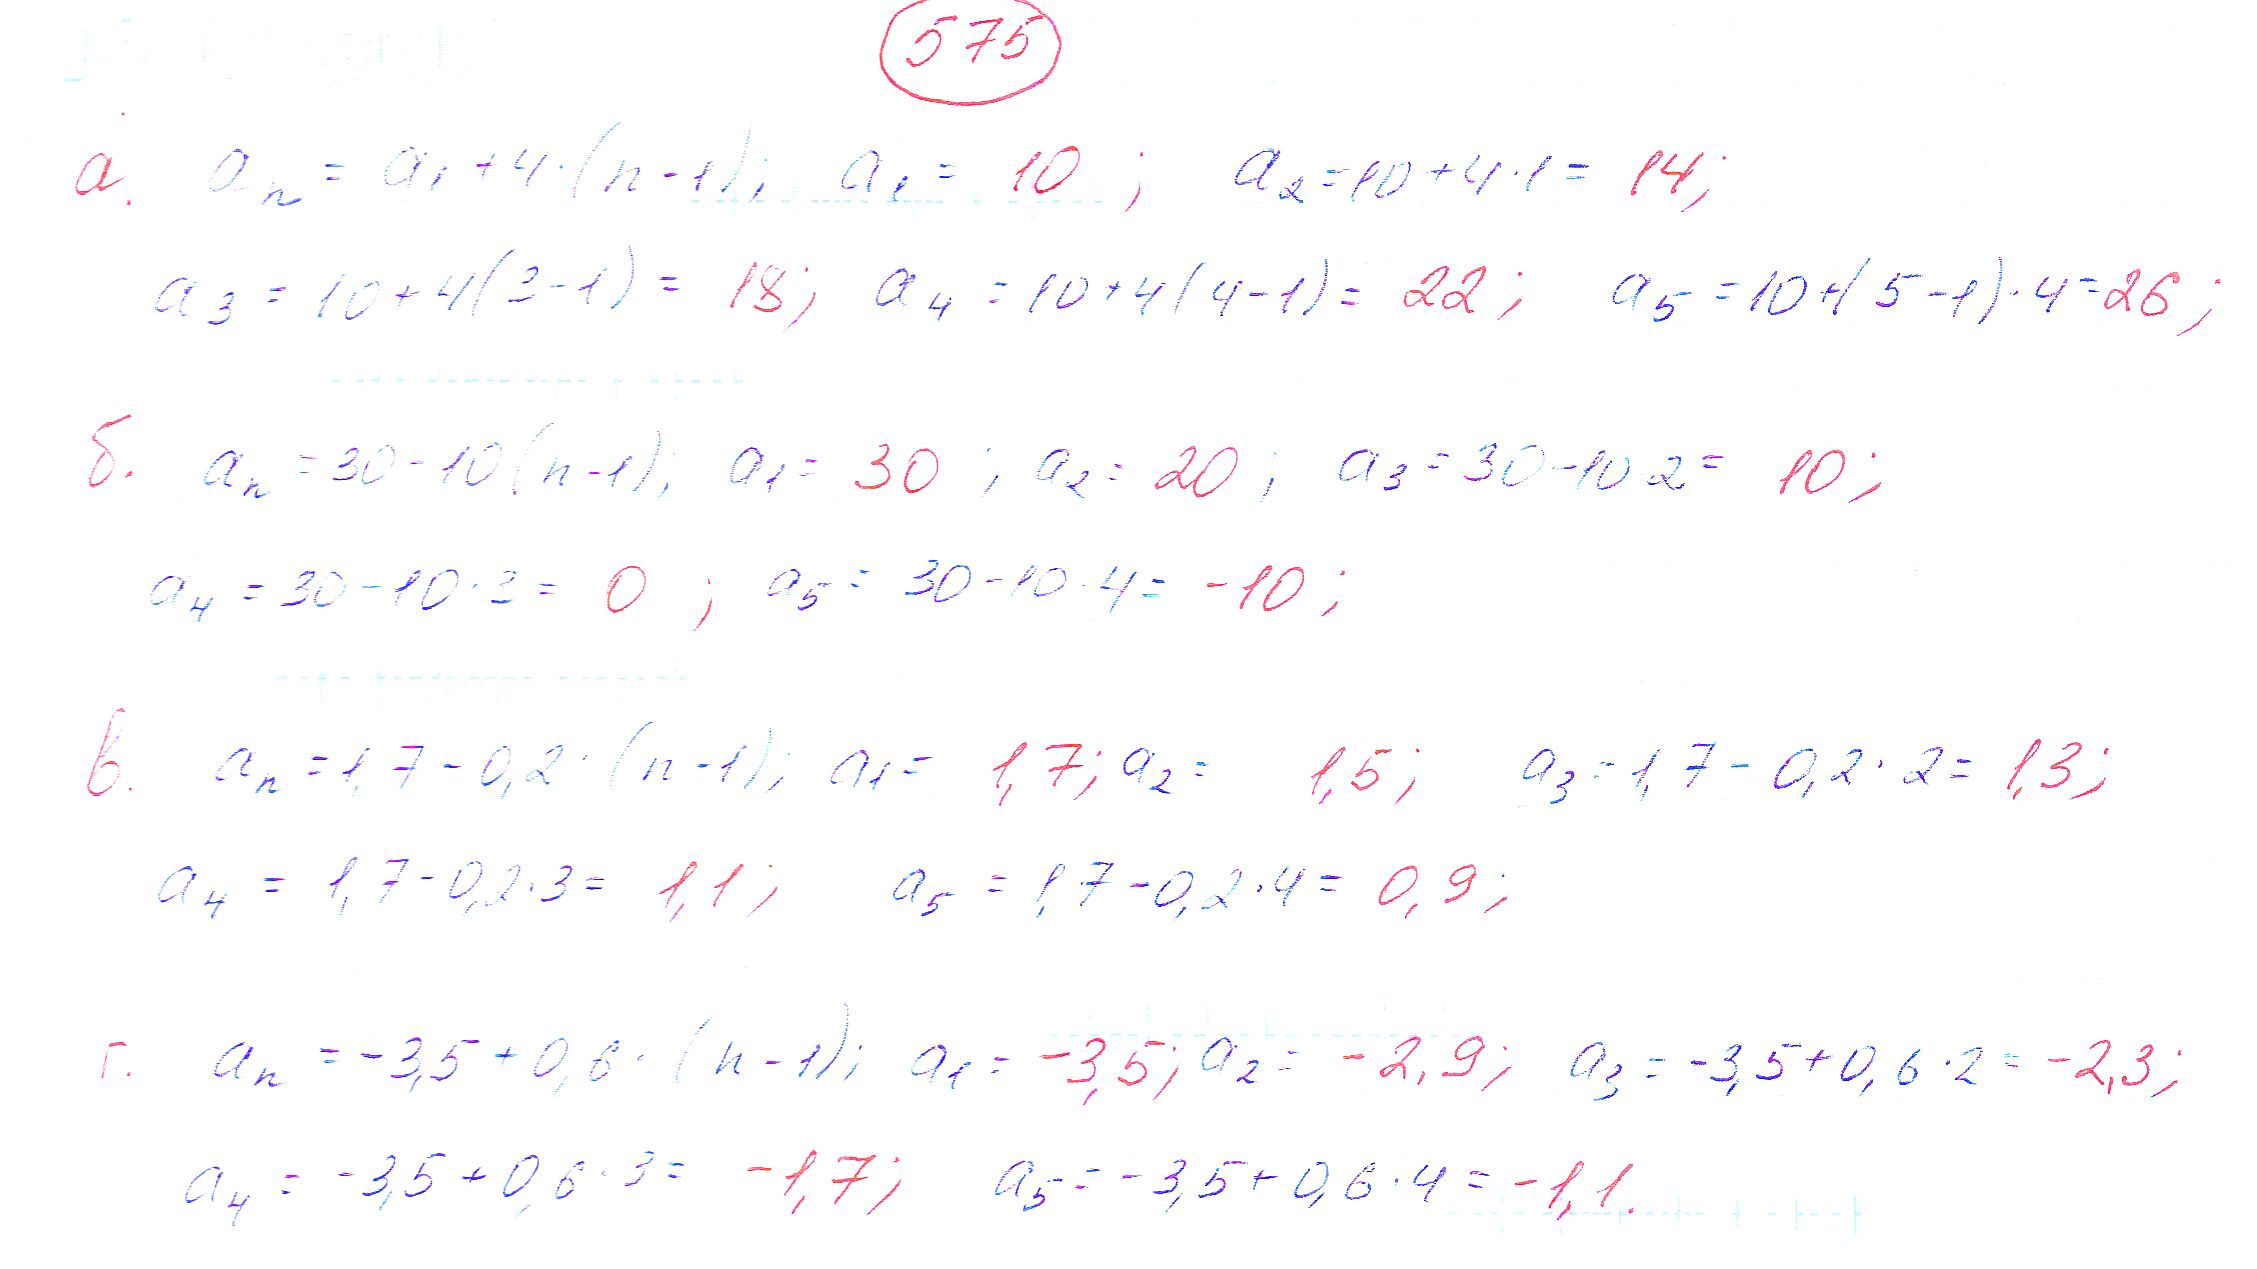 575
а. aₙ = a₁ + 4·(n-1); a₁ = 10; a₂ = 10 + 4·1 = 14;
a₃ = 10 + 4(3-1) = 18; a₄ = 10 + 4(4-1) = 22; a₅ = 10 + (5-1)·4 = 26;
б. aₙ = 30 - 10(n-1); a₁ = 30; a₂ = 20; a₃ = 30 - 10·2 = 10;
a₄ = 30 - 10·3 = 0; a₅ = 30 - 10·4 = -10;
в. aₙ = 1,7 - 0,2·(n-1); a₁ = 1,7; a₂ = 1,5; a₃ = 1,7 - 0,2·2 = 1,3;
a₄ = 1,7 - 0,2·3 = 1,1; a₅ = 1,7 - 0,2·4 = 0,9;
г. aₙ = -3,5 + 0,6·(n-1); a₁ = -3,5; a₂ = -2,9; a₃ = -3,5 + 0,6·2 = -2,3;
a₄ = -3,5 + 0,6·3 = -1,7; a₅ = -3,5 + 0,6·4 = -1,1.